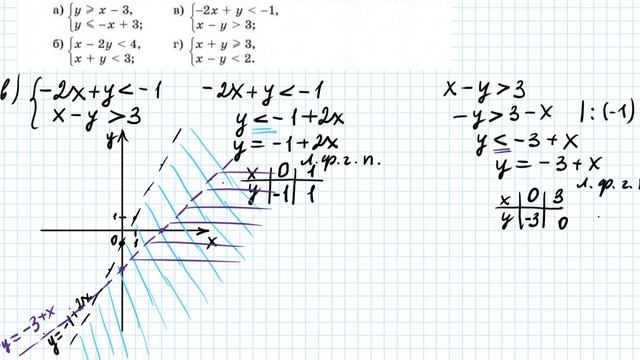 а) { y ⩾ x − 3,
y ⩽ −x + 3;
в) { −2x + y < −1,
x − y > 3;
б) { x − 2y < 4,
x + y < 3;
г) { x + y ⩾ 3,
x − y < 2.
в) { −2x+y<−1
x−y>3
−2x+y<−1
y<−1+2x
y=−1+2x
л.ф.г.п.
x 0 1
y −1 1
x−y>3
−y>3−x |:(−1)
y<−3+x
y=−3+x
л.ф.г.
x 0 3
y −3 0
y
1
0 1 x
y=−3+x
y=−1+2x